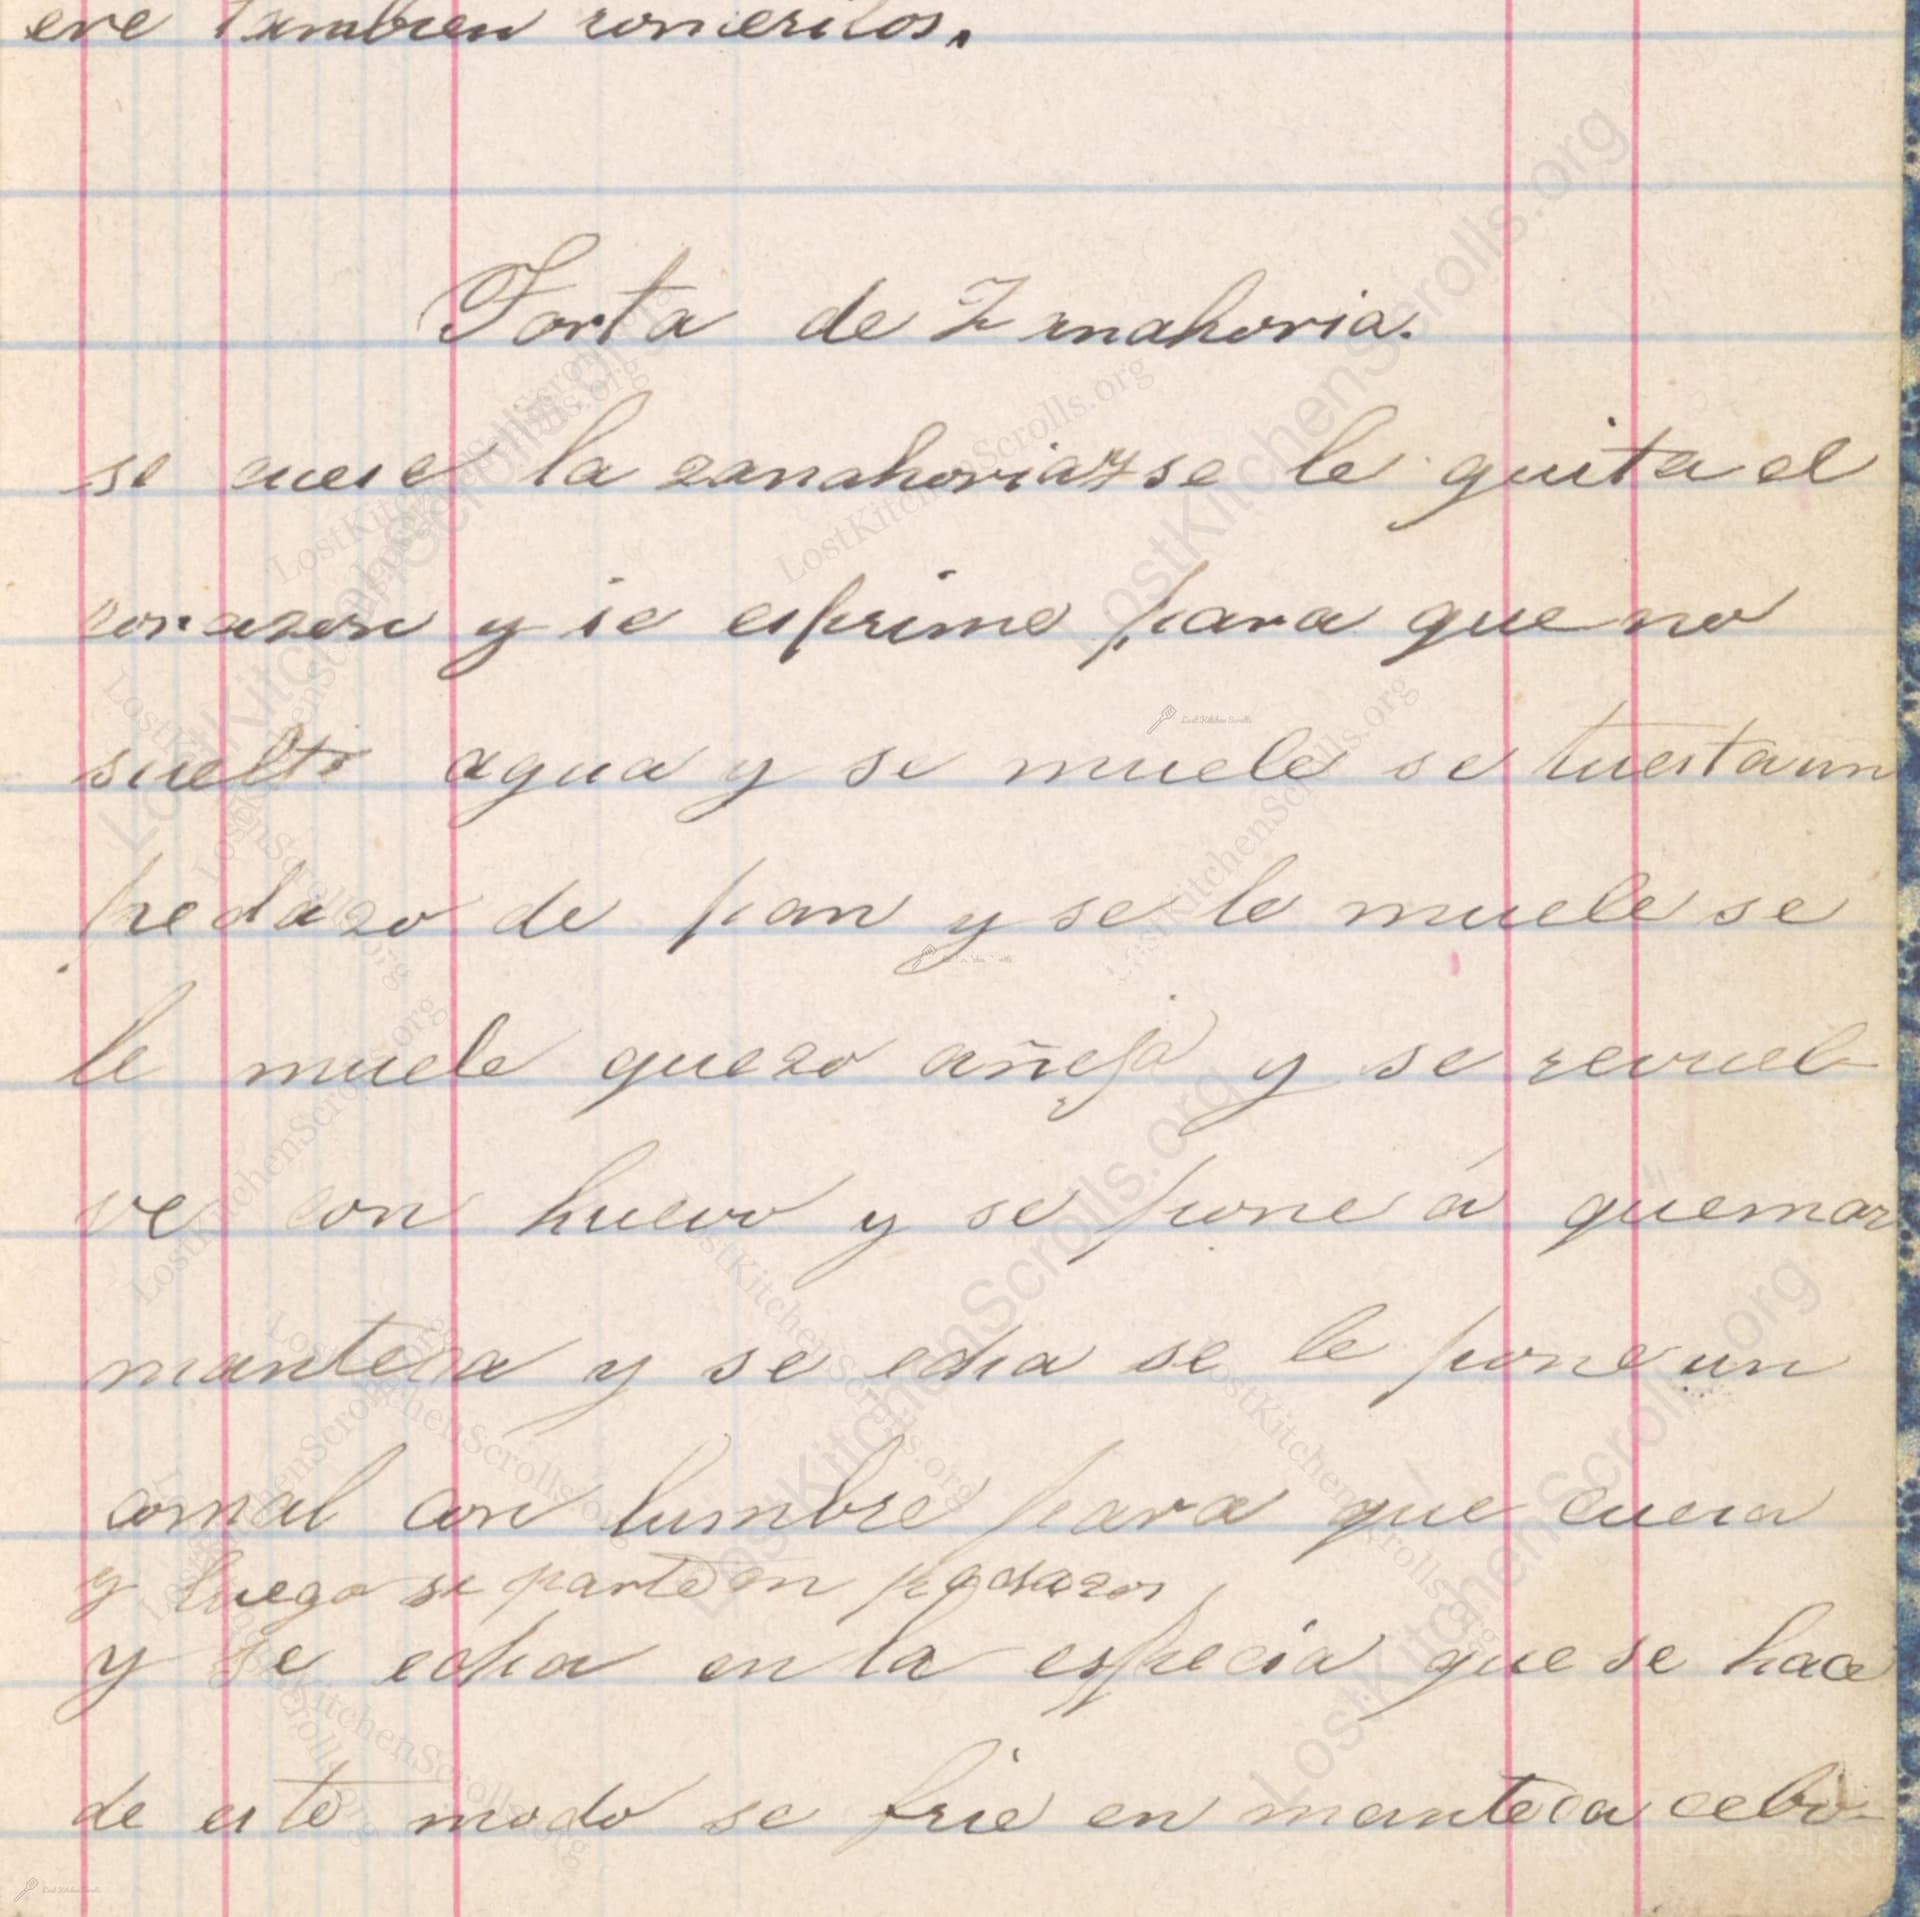 eve tambien romeritos.
Torta de Zanahoria.
se cuese la zanahoria y se le quita el
corazon y se esprime para que no
suelte agua y se muele se tuesta un
pedazo de pan y se le muele se
le muele quezo añejo y se revuel-
ve con huevo y se pone á quemar
manteca y se echa se le pone un
comal con lumbre para que cuesa
y luego se parte en pedazos
y se echa en la especia que se hace
de este modo se frie en manteca cebo-